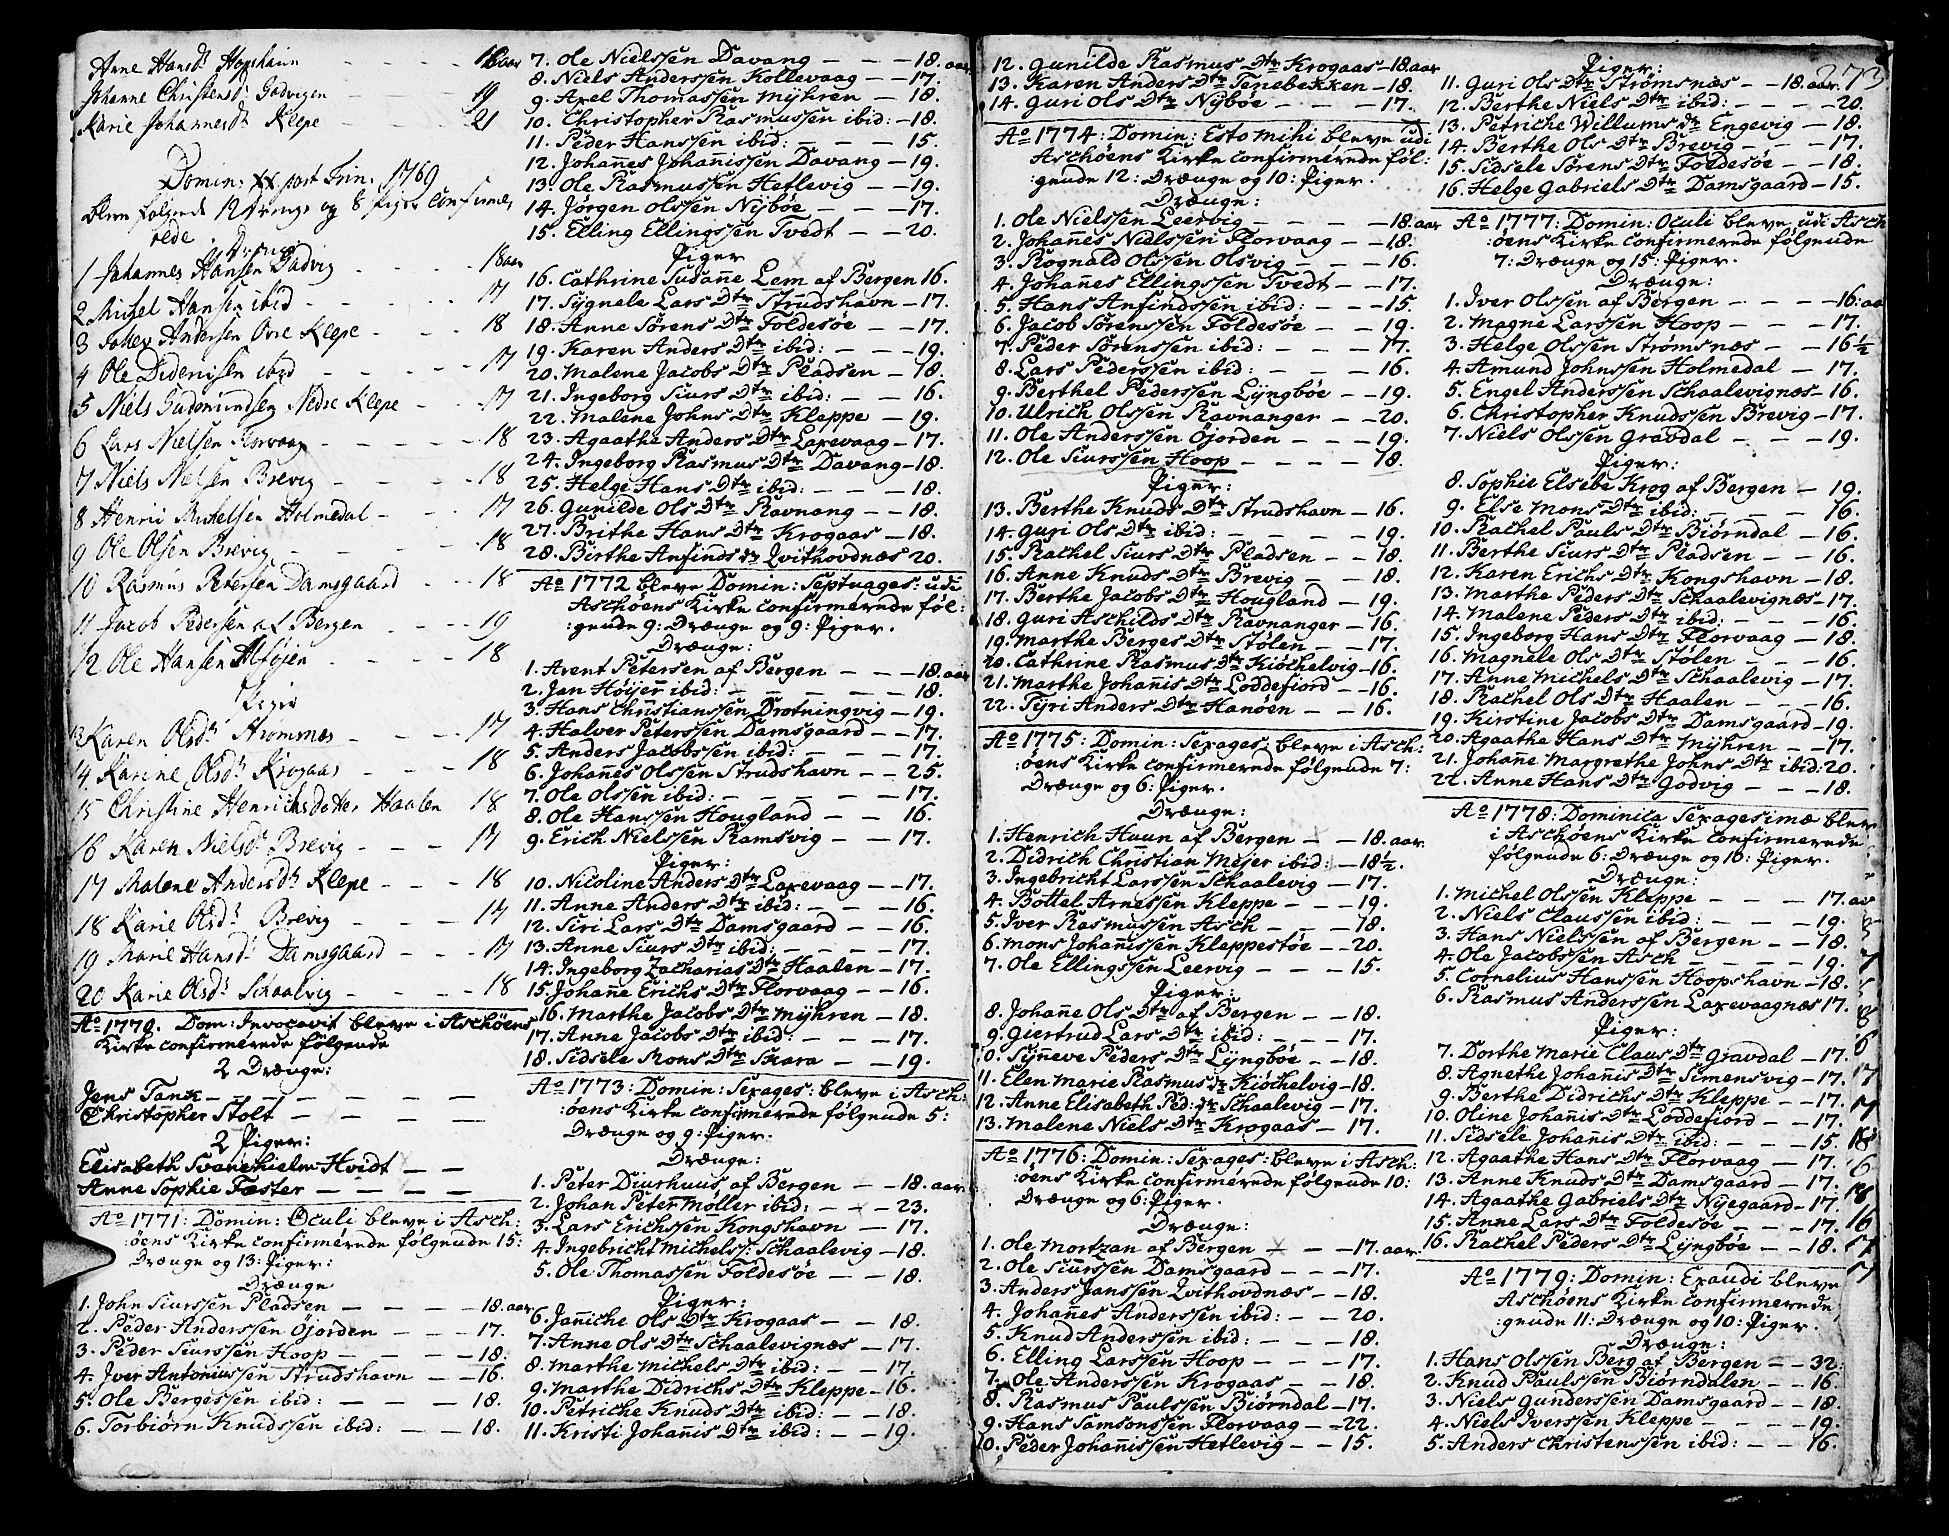 Anne Hansd: Hopshavn - - - - 16 aar
Johanne Christensd: Gadvigen - - - 19
Karie Johannesd: Klepe - - - - 21
Domin: XX post Trin: 1769
bleve følgende 12 drenge og 8 piger confirme-
rede. Drenge
1 Johannes Hansen Gadvig - - - - 18 aar
2 Michel Hansen ibid - - - - 17
3 Andersen Øvre Klepe - - - 18
4 Ole Didenisen ibid - - - - 17
5 Niels Gudmundsen Nedre Klepe - - 17
6 Lars Nielsen Florvaag - - - - 18
7 Niels Nielsen Brevig - - - - 18
8 Henric Michelsen Holmedal - - - 17
9 Ole Olsen Brevig - - - - 18
10 Rasmus Petersen Damsgaard - - - 18
11 Jacob Pedersen af Bergen - - - 19
12 Ole Hansen Alføjen - - - - 18
Piger
13 Karen Olsd: Strømnes - - - - 17
14 Karine Olsd: Krogaas - - - 18
15 Christine Henrichsdatter Haalen 18
16 Karen Nielsd: Brevig - - - 17
17 Malene Andersd: Klepe - - - 18
18 Karie Olsd: Brevig - - - 17
19 Marie Hansd: Damsgaard - - - 17
20 Karie Olsd: Schaalvig - - - - 18
Ao 1770. Dom: Invocavit bleve i Aschöens
Kirke confirmerede følgende
2 Drænge:
Jens Tank - - - - - -
Christopher Stolt - - - -
2 Piger:
Elisabeth Svanehielm Hvidt - -
Anne Sophie Fæster - - - -
Ao 1771: Domin: Oculi bleve i Asch:
:öens Kirke confirmerede følgende 15:
Drænge og 13: Piger:
Drænge
1. John Siurssen Pladsen - - - - 18. aar
2. Peder Anderssen Öjorden - - - 17.
3. Peder Siurssen Hoop - - - - 18.
4. Iver Antoniussen Strudshavn - - 16.
5. Ole Bergessen ibid: - - - - 18.
6. Torbiörn Knudssen ibid: - - - 18.
7. Ole Nielssen Davang - - - 18. aar
8. Niels Anderssen Kollevaag - - 17.
9. Axel Thomassen Mÿhren - - 18.
10. Christopher Rasmussen ibid: - 18.
11. Peder Hanssen ibid: - - - 15.
12. Johañes Johañissen Davang - 19.
13. Ole Rasmussen Hetlevig - - 19.
14. Jörgen Olssen Nÿböe - - - 17.
15. Elling Ellingssen Tvedt - - 20.
Piger
16. Cathrine Susañe Lem af Bergen 16.
17. Sÿgnele Lars Dtr Strudshavn - 17.
18. Anne Sörens Dtr Foldesöe - - 17.
19. Karen Anders Dtr ibid: - - - 19.
20. Malene Jacobs Dtr Pladsen - 18.
21. Ingeborg Siurs Dtr ibid: - - 16.
22. Malene Johns Dtr Kleppe - 19.
23. Agaathe Anders Dtr Laxevaag - 17.
24. Ingeborg Rasmus Dtr Davang - 18.
25. Helge Hans Dtr ibid: - - - 18.
26. Gunilde Ols Dtr Ravnang - - 18.
27. Brithe Hans Dtr Krogaas - 18.
28. Birthe Anfinds Dr Qvithovdnæs 20.
Ao 1772 bleve Domin: Septuages: udi
Aschöens Kirke confirmerede føl:
:gende 9: Drænge og 9: Piger.
Drænge:
1. Arent Petersen af Bergen - - - 18. aar
2. Jan Höijer ibid: - - - - - 18.
3. Hans Christianssen Drotningvig - 19.
4. Halver Peterssen Damsgaard - - 17.
5. Anders Jacobssen ibid: - - - 17.
6. Johañes Olssen Strudshavn - - 25.
7. Ole Olssen ibid: - - - - - 17.
8. Ole Hanssen Hougland - - 16.
9. Erich Nielssen Ramsvig - - 17.
Piger:
10. Nicoline Anders Dtr Laxevaag - - 17.
11. Anne Anders Dtr ibid: - - - 16.
12. Siri Lars Dtr Damsgaard - - 16.
13. Anne Siurs Dtr ibid: - - - - 17.
14. Ingeborg Zacharias Dtr Haalen - 17.
15. Johañe Erichs Dtr Florvaag - - 16.
16. Marthe Jacobs Dtr Mÿhren - 18.
17. Anne Jacobs Dtr ibid: - - - 17.
18. Sidsele Mons Dtr Skara - - 19.
Ao 1773: Domin: Sexages: bleve i Asch:
:öens Kirke confirmerede følgende 5:
Drænge og 9: Piger.
Drænge:
1. Peter Diurhuus af Bergen - - 18. aar
2. Johan Peter Møller ibid: - - 23.
3. Lars Erichssen Kongshavn - - 17.
4. Ingebricht Michels: Schaalevig - 18.
5. Ole Thomassen Foldesöe - - 18.
Piger:
6. Jañiche Ols Dtr Krogaas - - 18.
7. Anne Ols Dtr Schaalevignæs - 17.
8. Marthe Michels Dtr ibid: - - 17.
9. Marthe Didrichs Dtr Kleppe - 16.
10. Petriche Knuds Dtr ibid: - - 18.
11. Kristi Johañis Dtr ibid: - - 19.
12. Gunilde Rasmus Dtr Krogaas - 18. aar
13. Karen Anders Dtr Tenebekken - 18.
14. Guri Ols Dtr Nÿböe - - - 17.
Ao 1774: Domin: Esto mihi bleve udi
Aschöens Kirke confirmerede føl:
:gende 12: Drænge og 10: Piger.
Drænge:
1. Ole Nielssen Leervig - - - - 18. aar
2. Johañes Nielssen Florvaag - - 18.
3. Rognald Olssen Olsvig - - - 16.
4. Johañes Ellingssen Tvedt - - 17.
5. Hans Anfindssen ibid: - - - 15.
6. Jacob Sörenssen Foldesöe - - 19.
7. Peder Sörenssen ibid: - - - 17.
8. Lars Pederssen ibid: - - - 16.
9. Berthel Pederssen Lÿngböe - - 19.
10. Ulrich Olssen Ravnanger - - 20.
11. Ole Anderssen Öjorden - - - 19.
12. Ole Siurssen Hoop - - - - 18.
Piger:
13. Berthe Knuds Dtr Strudshavn - 16.
14. Guri Ols Dtr ibid: - - - - 19.
15. Rachel Siurs Dtr Pladsen - - 18.
16. Anne Knuds Dtr Brevig - - 18.
17. Berthe Jacobs Dtr Hougland - 19.
18. Guri Aschilds Dtr Ravnanger - 16.
19. Marthe Berges Dtr Stölen - - 17.
20. Cathrine Rasmus Dtr Kiöchelvig - 16.
21. Marthe Johañis Dtr Loddefiord - - 16.
22. Tÿri Anders Dtr Hanöen - - 16.
Ao 1775: Domin: Sexages: bleve i Asch:
:öens Kirke confirmerede følgende 7:
Drænge og 6: Piger.
Drænge:
1. Henrich Huun af Bergen - - 18. aar
2. Didrich Christian Meijer ibid: - 18½.
3. Ingebricht Larssen Schaalevig - 17.
4. Bottel Arnessen Kleppe - - - 19.
5. Iver Rasmussen Asch - - - 18.
6. Mons Johañissen Kleppestöe - - 20.
7. Ole Ellingssen Leervig - - - 15.
Piger:
8. Johañe Ols Dtr af Bergen - - 18.
9. Giertrud Lars Dtr ibid: - - - 17.
10. Sÿneve Peders Dtr Lÿngböe - - 18.
11. Elen Marie Rasmus Dr Kiöchelvig - 18.
12. Anne Elisabeth Ped: Dr Schaalevig - 17.
13. Malene Niels Dtr Krogaas - - 17.
Ao 1776: Domin: Sexages: bleve i Asch:
:öens Kirke confirmerede følgende 10:
Drænge og 6: Piger.
Drænge:
1. Ole Mortzan af Bergen - - - 17. aar
2. Ole Siurssen Damsgaard - - - 17.
3. Anders Janssen Qvithovdnæs - - 18.
4. Johañes Anderssen ibid: - - 20.
5. Knud Anderssen ibid: - - - 18.
6. Elling Larssen Hoop - - - 17.
7. Ole Anderssen Krogaas - - - 18.
8. Rasmus Paulssen Biörndal - 17.
9. Hans Samsonssen Florvaag - - 22.
10. Peder Johañissen Hetlevig - - 15.
273
Piger:
11. Guri Ols Dtr Strømsnæs - - 18. aar
12. Berthe Niels Dtr ibid: - - - 20.
13. Petriche Willums Dr Engevig - 18.
14. Berthe Ols Dtr Brevig - - - 17.
15. Sidsele Sörens Dtr Foldesöe - - 18.
16. Helge Gabriels Dtr Damsgaard - 15.
Ao 1777: Domin: Oculi bleve udi Asch
:öens Kirke confirmerede følgende
7: Drænge og 15: Piger.
Drænge:
1. Iver Olssen af Bergen - - - 16: aar
2. Magne Larssen Hoop - - - 17.
3. Helge Olssen Strømsnæs - - 16½
4. Amund Johnssen Holmedal - 17.
5. Engel Anderssen Schaalevignæs - 16.
6. Christopher Knudssen Brevig - 17.
7. Niels Olssen Gravdal - - - 19.
Piger:
8. Sophie Elsebe Krog af Bergen - 19.
9. Else Mons Dtr ibid: - - - - 16.
10. Rachel Pauls Dtr Biörndal - 16.
11. Berthe Siurs Dtr Pladsen - - 16.
12. Karen Erichs Dtr Kongshavn - 18.
13. Marthe Peders Dtr Schaalevignæs - 17.
14. Malene Peders Dtr ibid: - - - 16.
15. Ingeborg Hans Dtr Florvaag - 18.
16. Magnele Ols Dtr Stölen - - - 16.
17. Anne Michels Dtr Schaalevig - 17.
18. Rachel Ols Dtr Haalen - - - 16.
19. Kirstine Jacobs Dtr Damsgaard - 19.
20. Agaathe Hans Dtr Mÿhren - - 17.
21. Johañe Margrethe Johns Dtr ibid: 20.
22. Anne Hans Dtr Godvig - - - 18.
Ao 1778: Dominica Sexagesimæ bleve
i Aschöens Kirke confirmerede
følgende 6: Drænge og 10: Piger.
Drænge:
1. Michel Olssen Kleppe - - - 17. aar
2. Niels Claussen ibid: - - - - 19.
3. Hans Nielssen af Bergen - - 18.
4. Ole Jacobssen Asch - - - - 19.
5. Cornelius Hanssen Hoopshavn - 18.
6. Rasmus Anderssen Laxevaagnæs 17.
Piger:
7. Dorthe Marie Claus Dtr Gravdal - 17.
8. Agnethe Johañis Dtr Simensvig - 17.
9. Berthe Didrichs Dtr Kleppe - - 17.
10. Oline Johañis Dtr Loddefiord - - 17.
11. Sidsele Johañis Dtr ibid: - - - 15.
12. Agaathe Hans Dtr Florvaag - - 17.
13. Anne Knuds Dtr Damsgaard - - 17.
14. Agaathe Gabriels Dtr Nÿegaard - 17.
15. Anne Lars Dtr Foldesöe - - - 17.
16. Rachel Peders Dtr Lÿngböe - - 18.
Ao 1779: Domin: Exaudi bleve
Aschöens Kirke confirmerede
:gende 11: Drænge og 10: Piger.
Drænge:
1. Hans Olssen Berg af Bergen - - 32.
2. Knud Paulssen Biörndalen - - 16.
3. Niels Gunderssen Damsgaard - - 18.
4. Niels Iverssen Kleppe - - - - 19.
5. Anders Christenssen ibid: - - - 16.